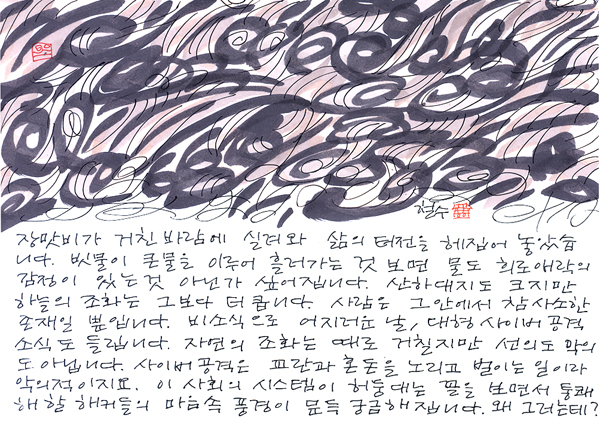 철수
장맛비가 거친 바람에 실려와 삶의 터전을 헤집어 놓았습
니다. 빗물이 큰물을 이루어 흘러가는 것 보면 물도 희로애락의
감정이 있는 것 아닌가 싶어집니다. 산하대지도 크지만
하늘의 조화는 그보다 더 큽니다. 사람은 그 안에서 참 사소한
존재일 뿐입니다. 비소식으로 어지러운 날, 대형 사이버 공격
소식도 들립니다. 자연의 조화는 때로 거칠지만 선의도 악의
도 아닙니다. 사이버 공격은 교란과 혼돈을 노리고 벌이는 일이라
악의적이지요. 이 사회의 시스템이 허둥대는 꼴을 보면서 통쾌
해 할 해커들의 마음속 풍경이 문득 궁금해집니다. 왜 그러는데?